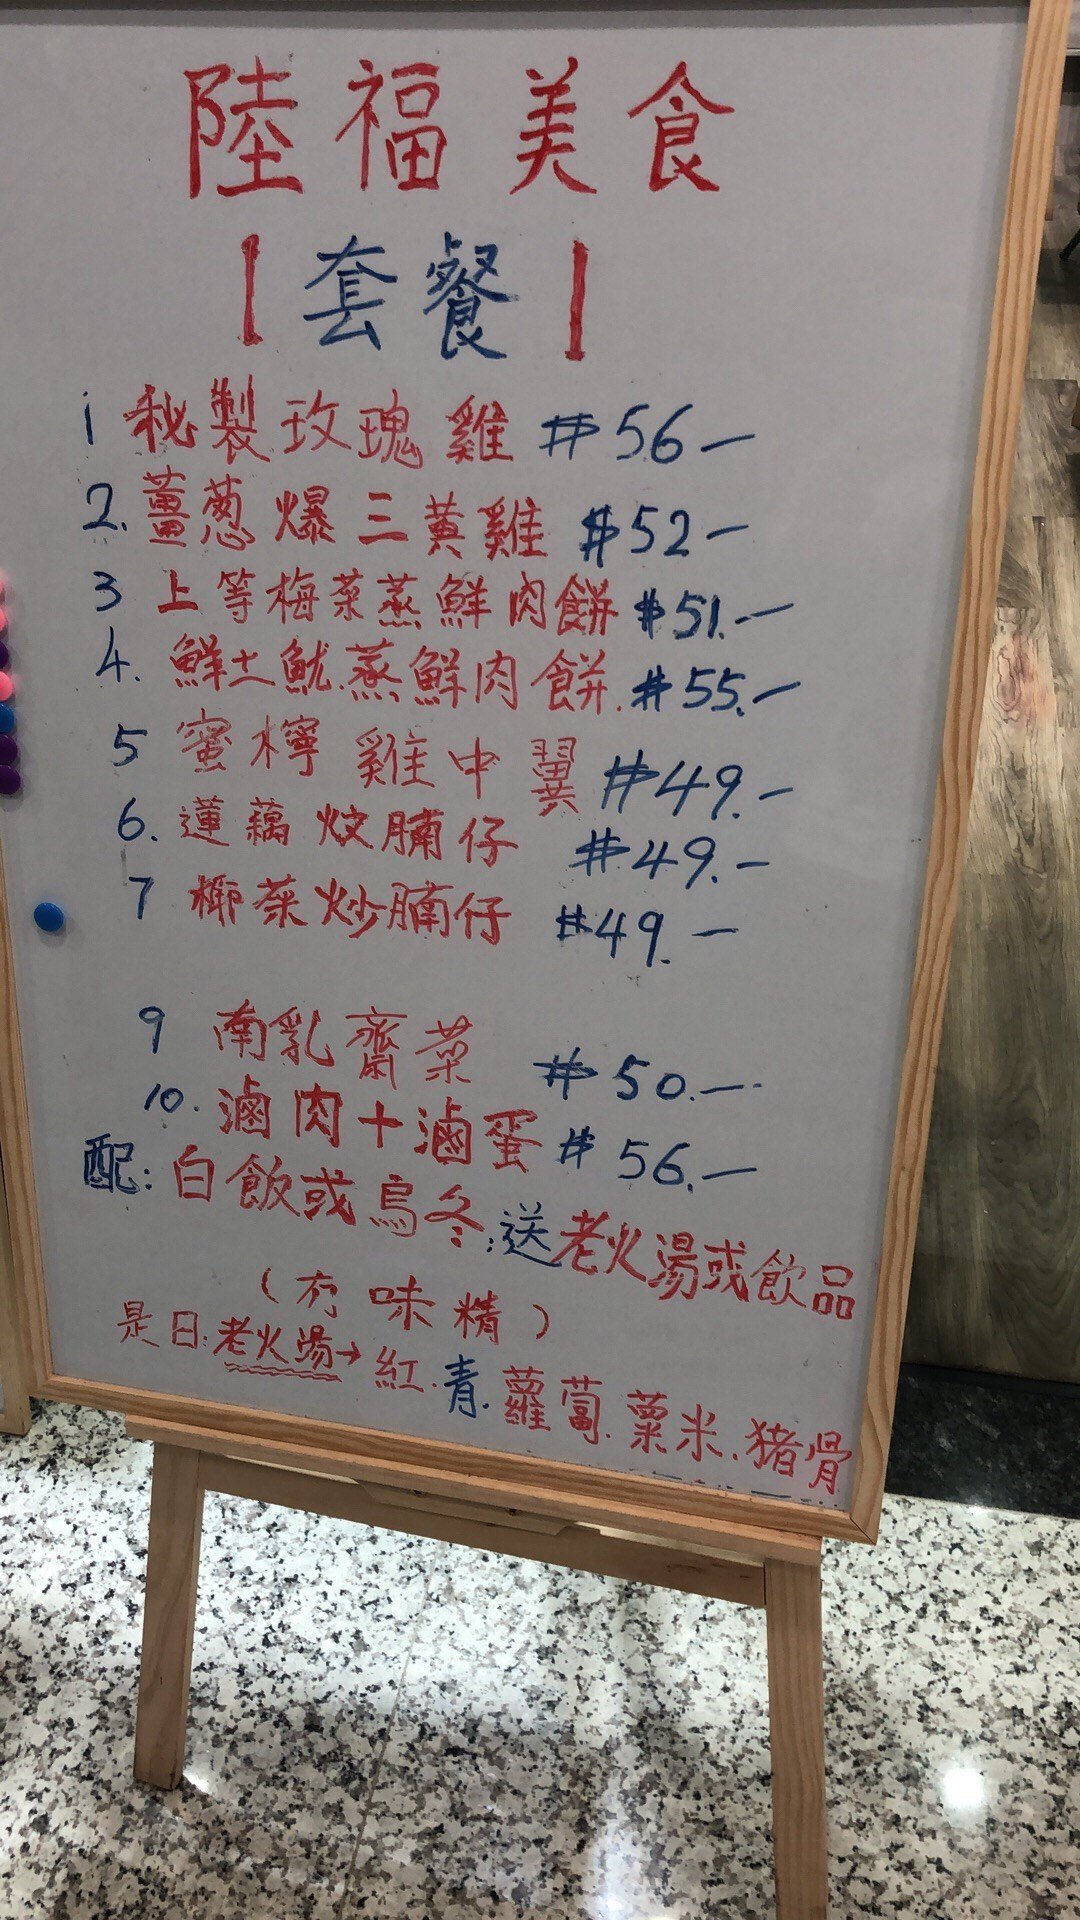 陸福美食
| 套餐 |
1 秘製玫瑰雞 $56-
2. 薑葱爆三黃雞 $52-
3 上等梅菜蒸鮮肉餅 $51.-
4. 鮮土魷蒸鮮肉餅. $55.-
5 蜜檸雞中翼 $49.-
6. 蓮藕炆腩仔 $49.-
7 椰菜炒腩仔 $49.-
9 南乳齋菜 $50.-
10. 滷肉+滷蛋 $56.-
配:白飯或烏冬:送老火湯或飲品
(冇味精)
是日:老火湯→紅.青.蘿蔔.粟米.豬骨